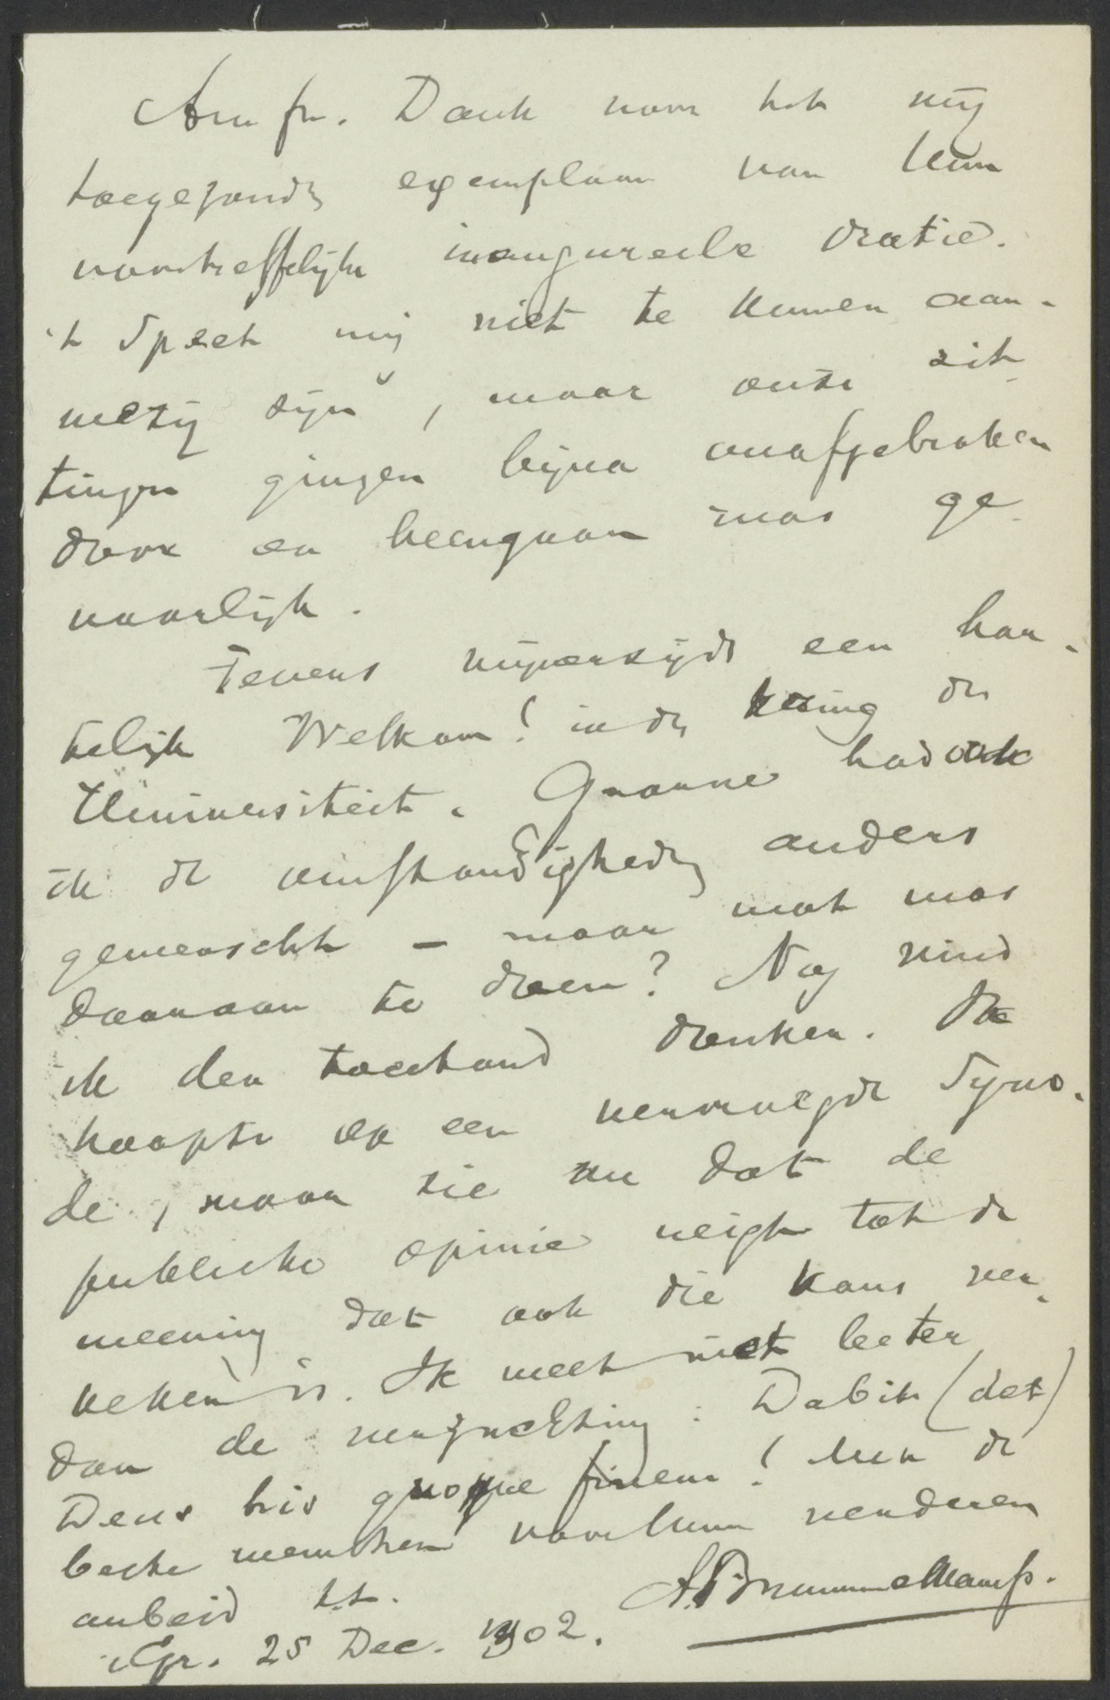 Am. fr. Dank voor het mij
toegezonden exemplaar van Uwe
voortreffelijke inaugureele oratie.
't Speet mij niet te kunnen aan-
wezig zijn, maar onze zit-
tingen gingen bijna onafgebroken
door en heengaan was ge-
vaarlijk.
Tevens mijnerzijds een har-
telijk Welkom! in den kring der
Universiteit. Gaarne had ook
ik de omstandigheden anders
gewenscht - maar wat was
daaraan te doen? Nog vind
ik den toestand donker. Ik
hoopte op een vervroegde Syno-
de, maar zie nu dat de
publieke opinie neigt tot de
meening dat ook die kans ver-
keken is. Ik weet niet beter
dan de verzuchting: Dabit (det)
Deus his quoque finem! Met de
beste wenschen voor Uwen verderen
arbeid t.t.
A. Brummelkamp.
Gr. 25 Dec. 1902.